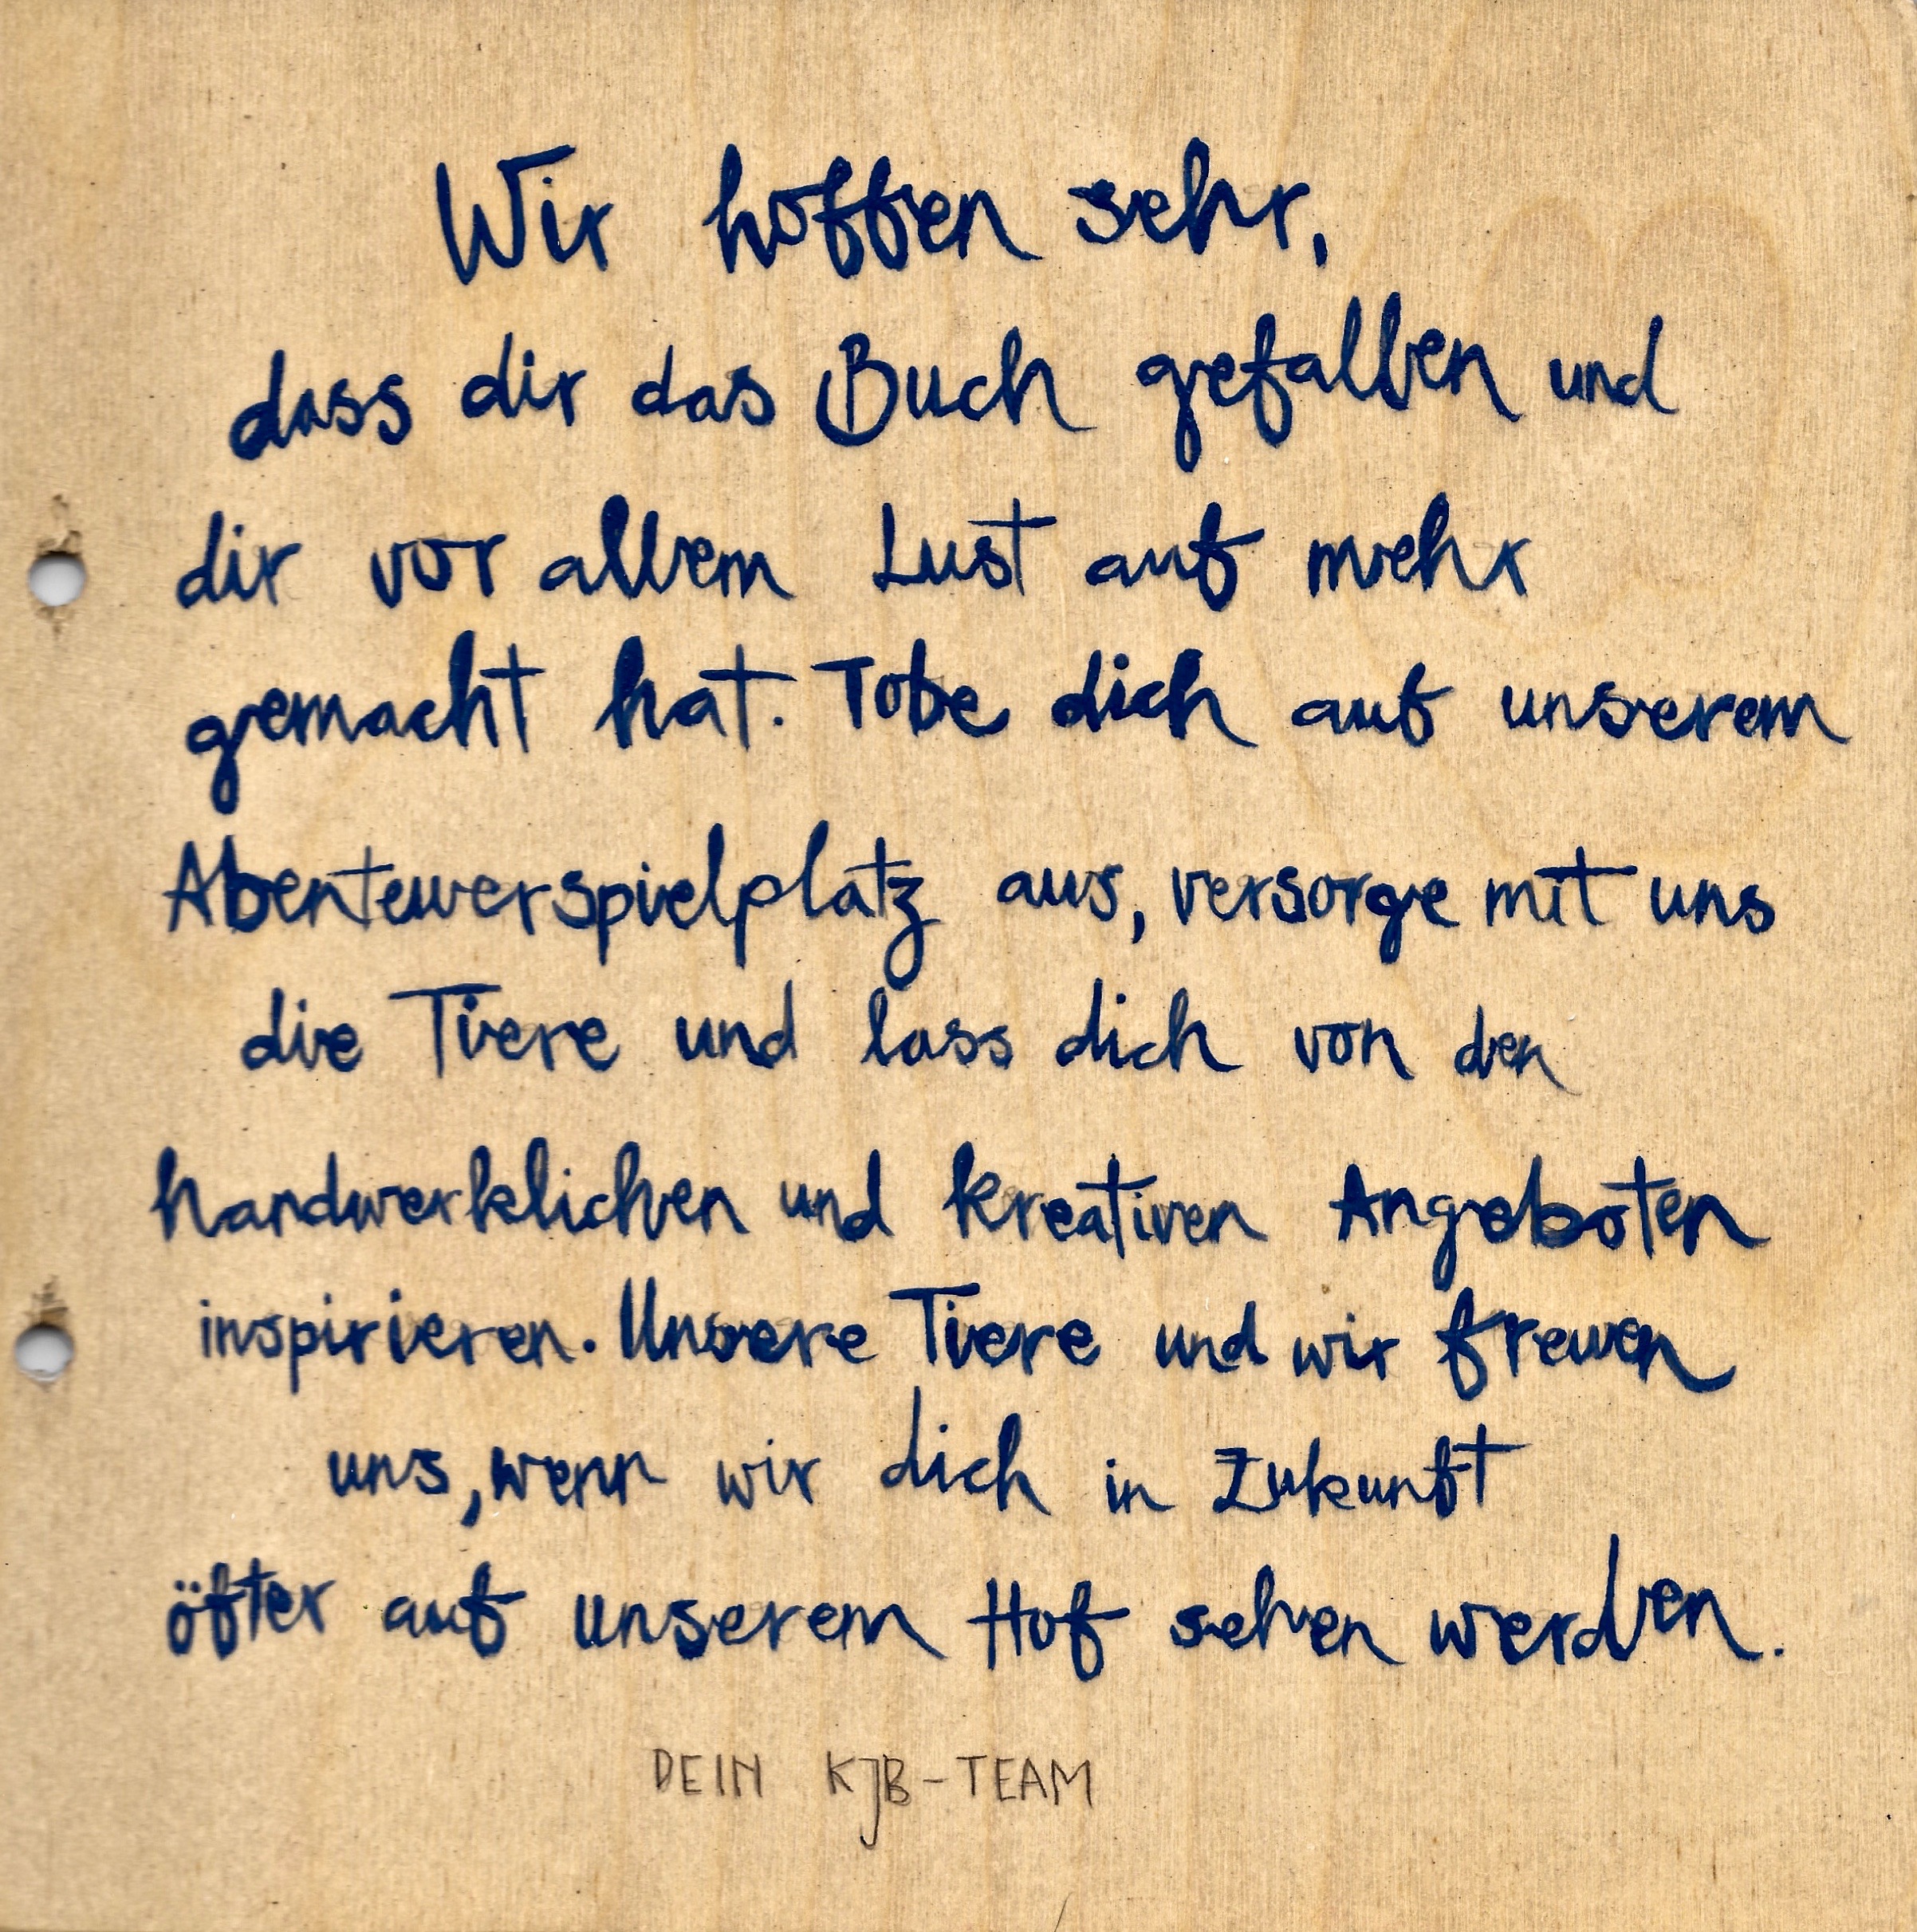 Wir hoffen sehr,
dass dir das Buch gefallen und
dir vor allem Lust auf mehr
gemacht hat. Tobe dich auf unserem
Abenteuerspielplatz aus, versorge mit uns
die Tiere und lass dich von den
handwerklichen und kreativen Angeboten
inspirieren. Unsere Tiere und wir freuen
uns, wenn wir dich in Zukunft
öfter auf unserem Hof sehen werden.
DEIN KJB-TEAM